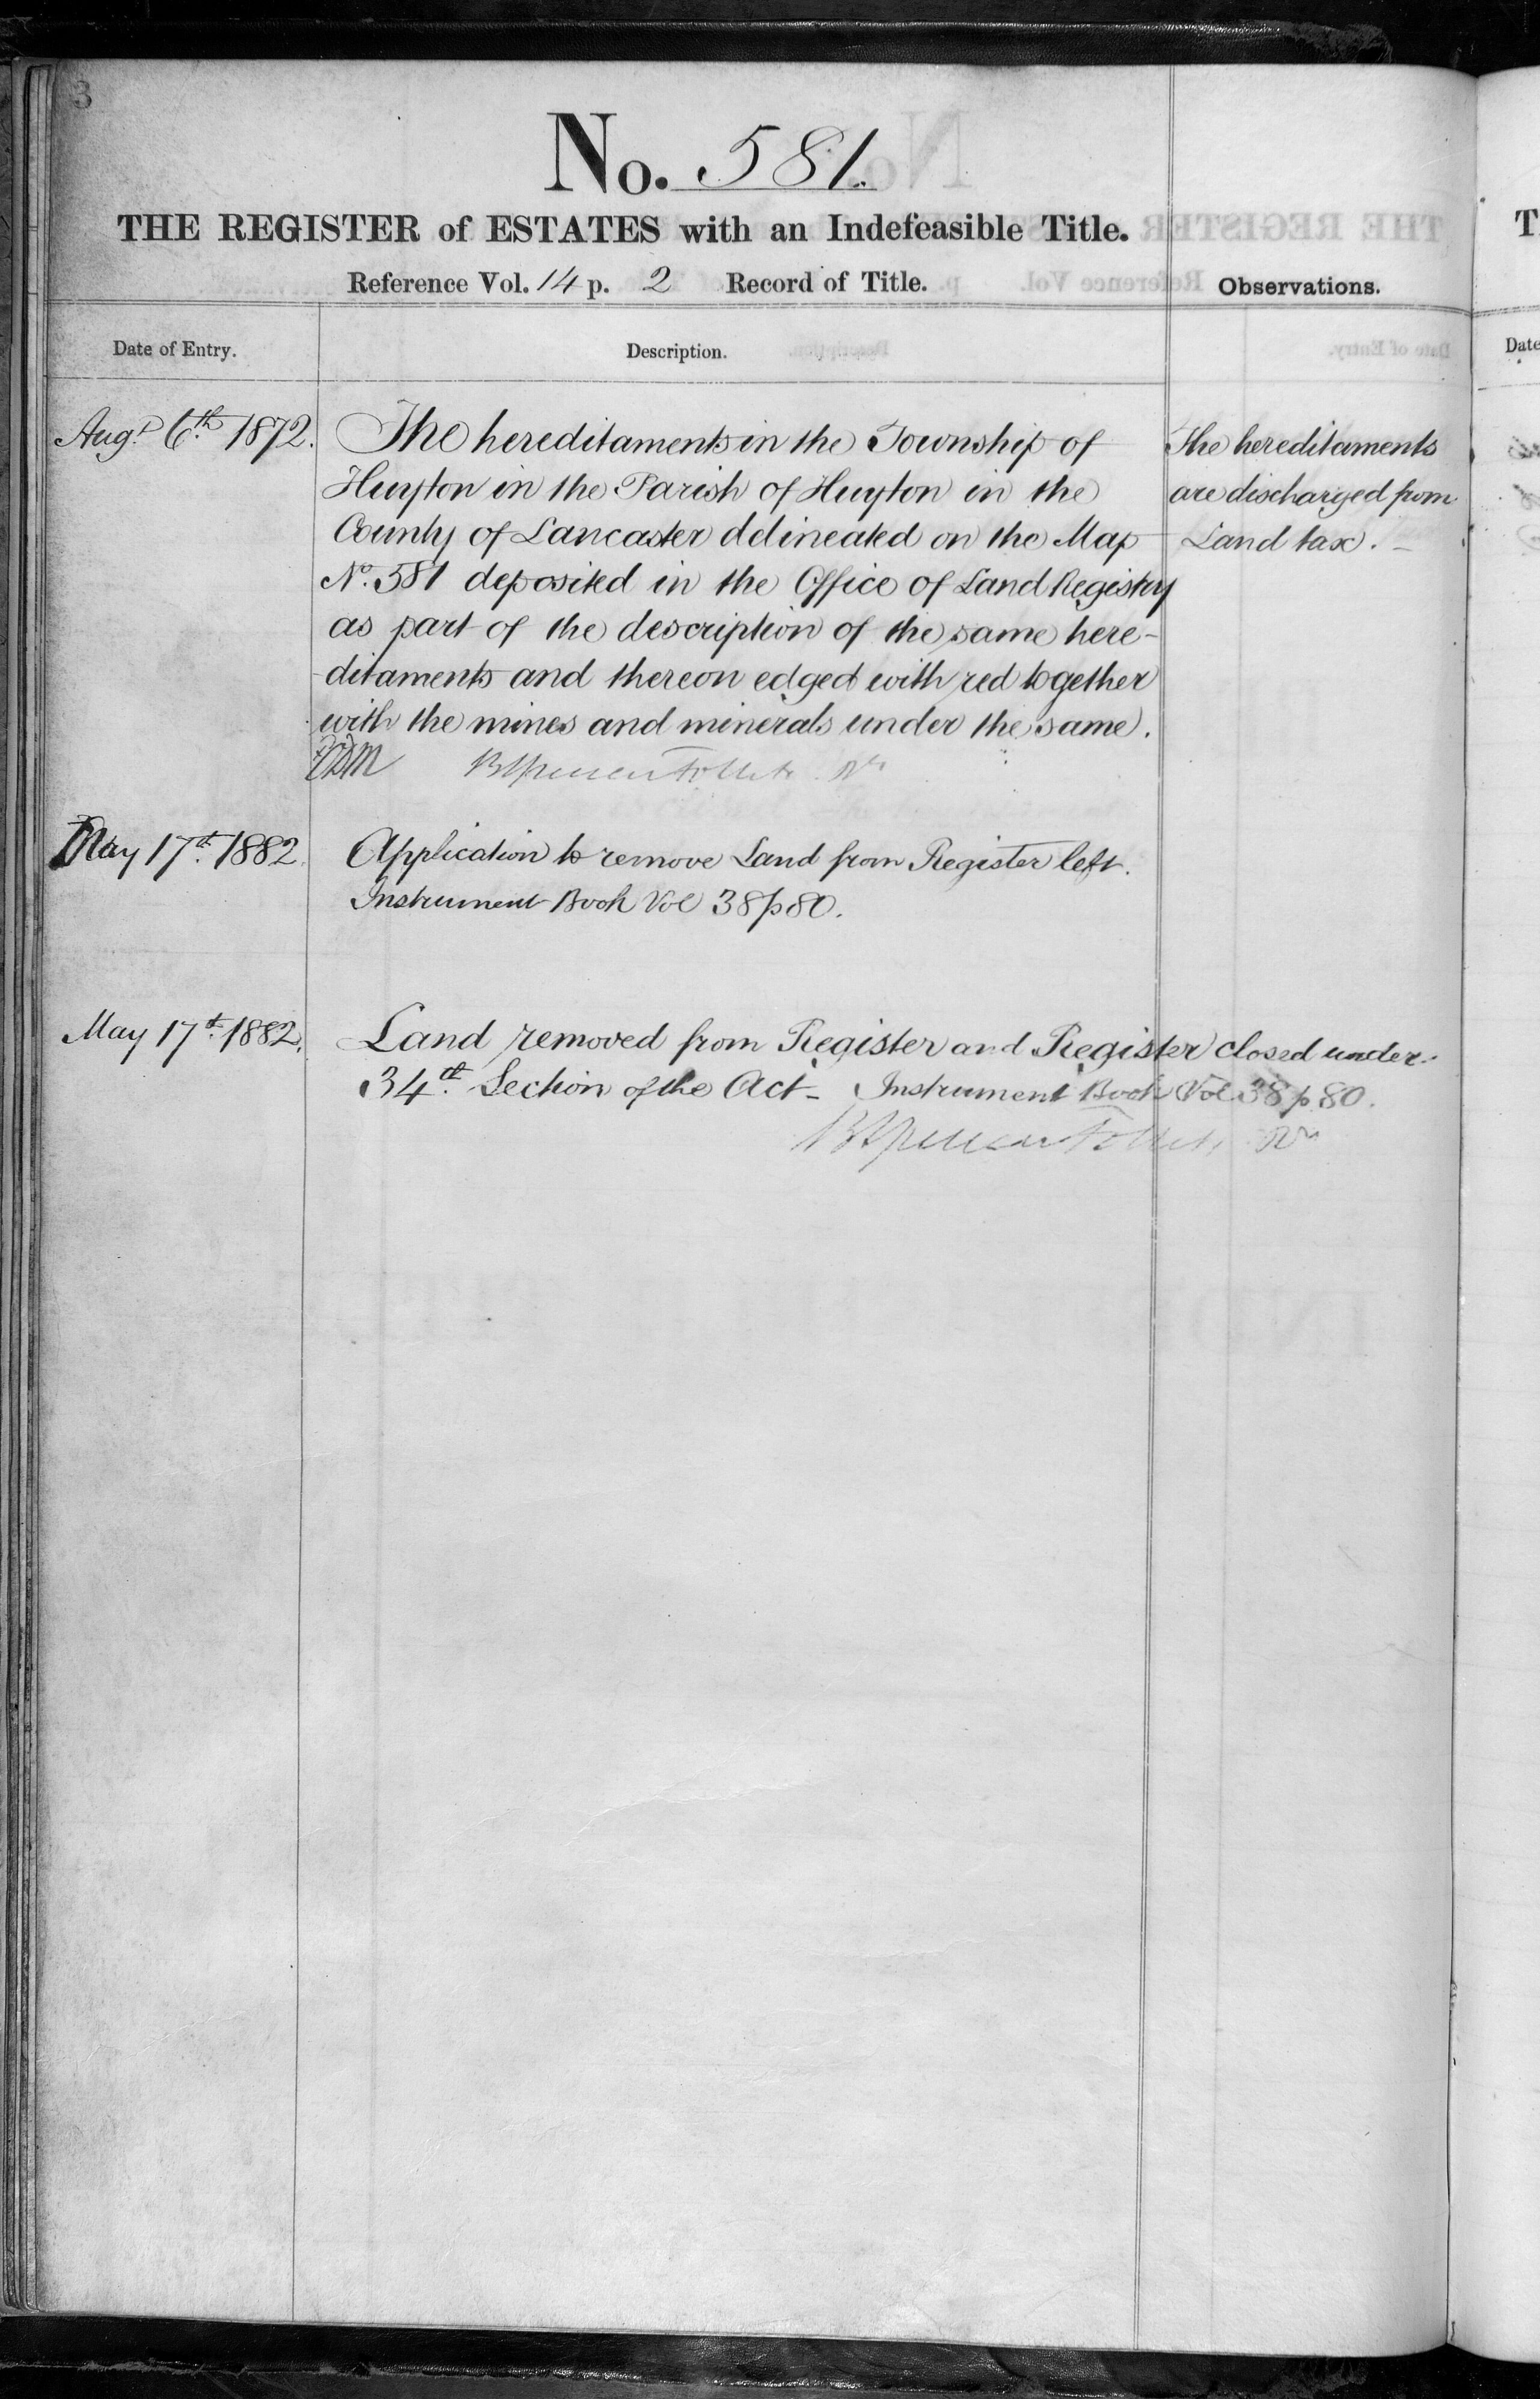 3
No. 581.
THE REGISTER of ESTATES with an Indefeasible Title.
Reference Vol. 14 p. 2 Record of Title.
Observations.
Date of Entry.
Description.
Augt 6th 1872.
The hereditaments in the Township of
Huyton in the Parish of Huyton in the
County of Lancaster delineated on the Map
No. 581 deposited in the Office of Land Registry
as part of the description of the same here-
ditaments and thereon edged with red together
with the mines and minerals under the same.
The hereditaments
are discharged from
Land tax. -
May 17th 1882
Application to remove Land from Register left.
Instrument Book Vol 38 p 80.
May 17th 1882.
Land removed from Register and Register closed under
34th Section of the Act - Instrument Book Vol 38 p 80.
T
Date